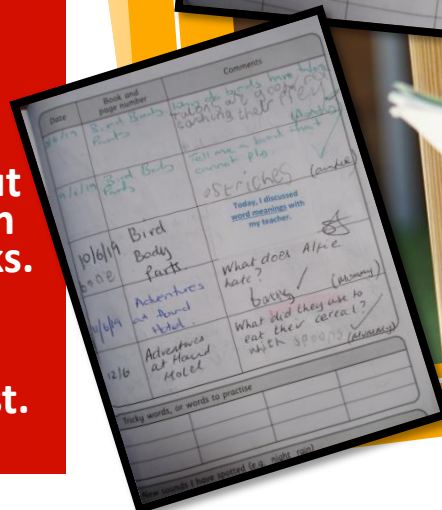 ut
n
ks.
st.
Date
Book and
page number
Comments
Bird Body
Parts
Why do birds have
talons are good for
catching their prey
Bird Body
Parts
Tell me a bird that
cannot fly.
ostriches
10/6/19
Bird
Body
Parts.
Today, I discussed
word meanings with
my teacher.
Adventures
at
Hotel.
What does Alfie
hate?
(Mummy)
12/6
Adventures
at
Hotel
What did they use to
eat their cereal?
with spoons (Mummy)
Tricky words, or words to practise
New sounds I have spotted (e.g. night, rain)